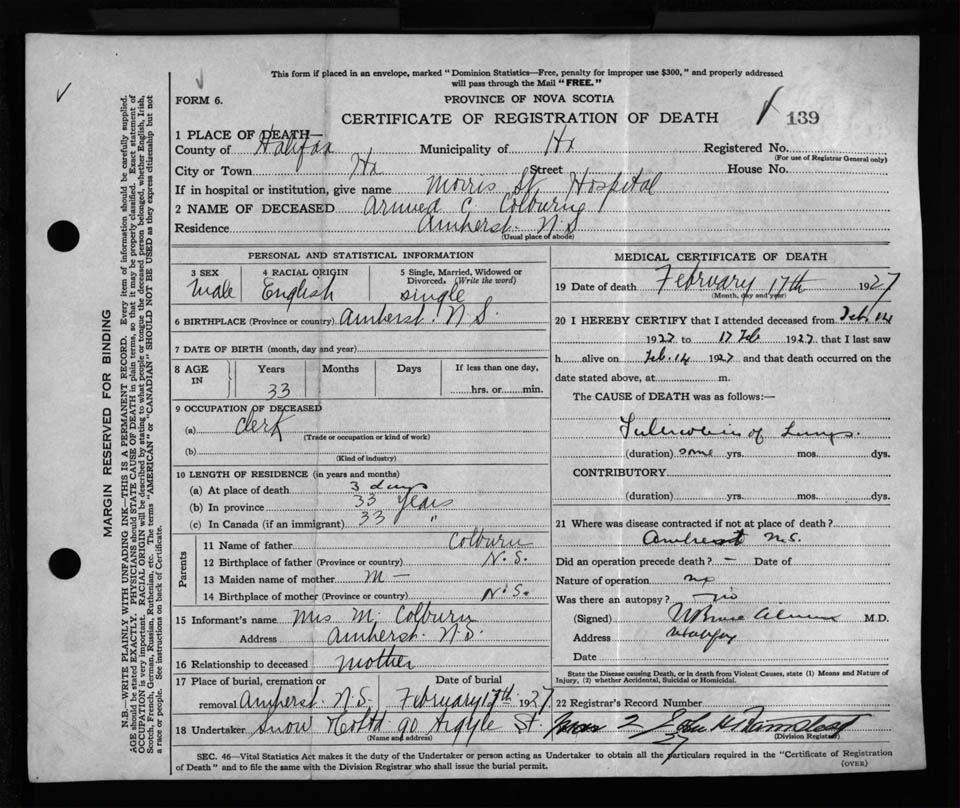 This form if placed in an envelope, marked "Dominion Statistics—Free, penalty for improper use $300," and properly addressed
will pass through the Mail "FREE."
FORM 6.
PROVINCE OF NOVA SCOTIA
CERTIFICATE OF REGISTRATION OF DEATH
139
MARGIN RESERVED FOR BINDING
N.B.—WRITE PLAINLY WITH UNFADING INK—THIS IS A PERMANENT RECORD. Every item of information should be carefully supplied.
AGE should be stated EXACTLY. PHYSICIANS should STATE CAUSE OF DEATH in plain terms, so that it may be properly classified. Exact statement of
OCCUPATION is very important. RACIAL ORIGIN will be described by stating to what people or tongue the deceased person belonged, whether English, Irish,
Scotch, French, German, Russian, Ruthenian, etc. The terms "AMERICAN" or "CANADIAN" SHOULD NOT BE USED as they express citizenship but not
a race or people. See instructions on back of Certificate.
1 PLACE OF DEATH—
County of Halifax Municipality of Hx Registered No.
(For use of Registrar General only)
City or Town Hx Street House No.
If in hospital or institution, give name Morris St. Hospital
2 NAME OF DECEASED C. Colburn
Residence Amherst. N.S
(Usual place of abode)
PERSONAL AND STATISTICAL INFORMATION
3 SEX 4 RACIAL ORIGIN 5 Single, Married, Widowed or Divorced. (Write the word)
Male English single
6 BIRTHPLACE (Province or country) Amherst. N.S.
7 DATE OF BIRTH (month, day and year)
8 AGE IN Years Months Days If less than one day,
33 hrs. or min.
9 OCCUPATION OF DECEASED
(a) Clerk
(Trade or occupation or kind of work)
(b)
(Kind of industry)
10 LENGTH OF RESIDENCE (in years and months)
(a) At place of death 3 days
(b) In province 33 years
(c) In Canada (if an immigrant) 33 "
Parents
11 Name of father Colburn
12 Birthplace of father (Province or country) N.S.
13 Maiden name of mother M —
14 Birthplace of mother (Province or country) N.S.
15 Informant's name Mrs M. Colburn
Address Amherst. N.S.
16 Relationship to deceased mother
17 Place of burial, cremation or removal Date of burial
Amherst. N.S. February 1927
18 Undertaker Snow 90 Argyle St.
(Name and address)
MEDICAL CERTIFICATE OF DEATH
19 Date of death February 17th 1927
(Month, day and year)
20 I HEREBY CERTIFY that I attended deceased from Feb. 14
1927 to 17 Feb 1927 that I last saw
h alive on Feb. 14 1927 and that death occurred on the
date stated above, at m.
The CAUSE of DEATH was as follows:—
Tuberculosis of Lungs.
(duration) some yrs. mos. dys.
CONTRIBUTORY
(duration) yrs. mos. dys.
21 Where was disease contracted if not at place of death?
Amherst N.S.
Did an operation precede death? — Date of
Nature of operation no
Was there an autopsy? no
(Signed) M.D.
Address Halifax
Date
State the Disease causing Death, or in death from Violent Causes, state (1) Means and Nature of
Injury, (2) whether Accidental, Suicidal or Homicidal.
22 Registrar's Record Number
2
(Division Registrar)
SEC. 46—Vital Statistics Act makes it the duty of the Undertaker or person acting as Undertaker to obtain all the particulars required in the "Certificate of Registration
of Death" and to file the same with the Division Registrar who shall issue the burial permit.
(OVER)